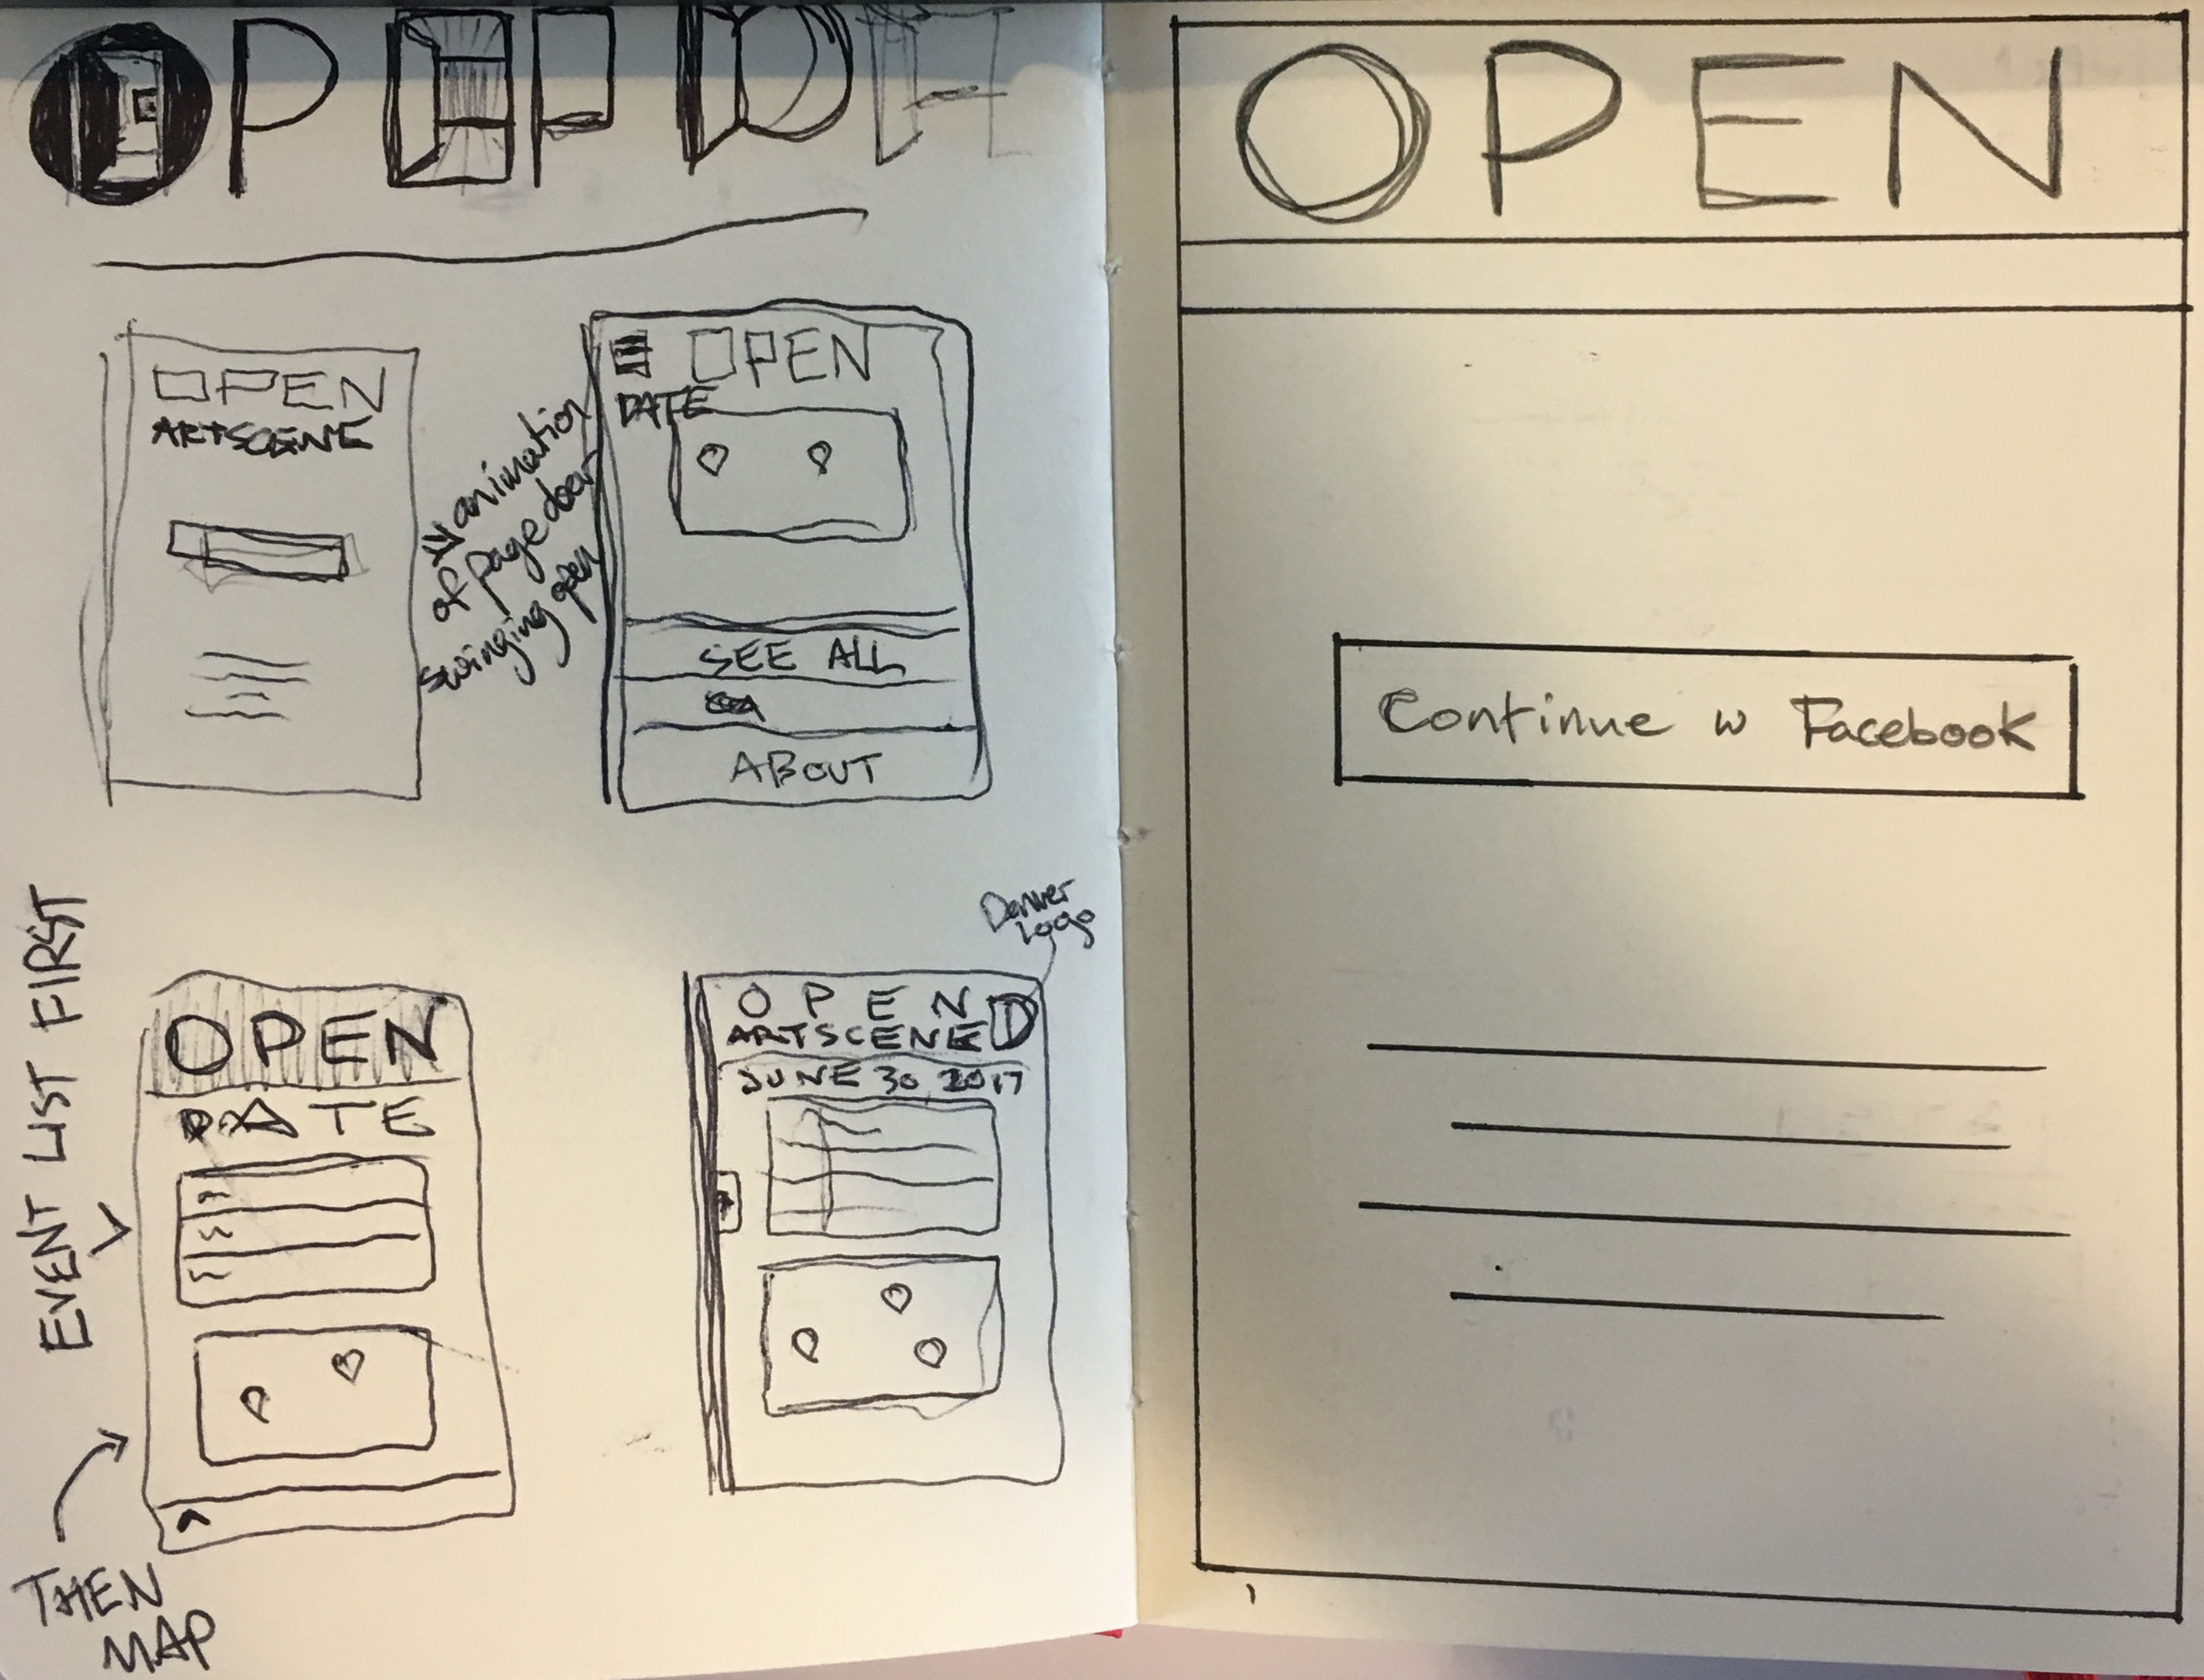 OPEN
ARTSCENE
animation
of page door
swinging open
OPEN
DATE
SEE ALL
ABOUT
EVENT LIST FIRST
THEN
MAP
OPEN
DATE
Denver
Logo
OPEN
ARTSCENE D
JUNE 30 2017
OPEN
Continue w Facebook